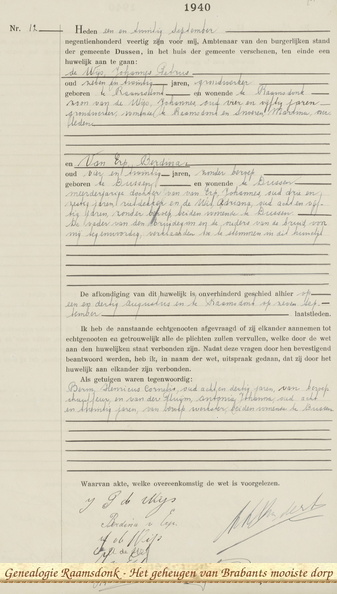 1940
Nr. 12
Heden een en twintig September
negentienhonderd veertig zijn voor mij, Ambtenaar van den burgerlijken stand
der gemeente Dussen, in het huis der gemeente verschenen, ten einde een
huwelijk aan te gaan:
de Wijs, Johannes Petrus
oud zeven en twintig jaren, grondwerker
geboren te Raamsdonk en wonende te Raamsdonk
zoon van de Wijs, Johannes oud vier en vijftig jaren
grondwerker, wonende te Raamsdonk en
leden
en Van Erp, Berdina
oud vier en twintig jaren, zonder beroep
geboren te Dussen en wonende te Dussen
meerderjarige dochter van van Erp, Johannes, oud drie en
zestig jaren, en de Wit, Adriana, oud acht en vijf-
tig jaren, zonder beroep beiden wonende te Dussen
De vader van den bruidegom en de ouders van de bruid voor
mij tegenwoordig, verklaarden toe te stemmen in dit huwelijk
De afkondiging van dit huwelijk is onverhinderd geschied alhier op
een en dertig Augustus en te Raamsdonk op zeven Sep-
tember laatstleden.
Ik heb de aanstaande echtgenooten afgevraagd of zij elkander aannemen tot
echtgenooten en getrouwelijk alle de plichten zullen vervullen, welke door de wet
aan den huwelijken staat verbonden zijn. Nadat deze vragen door hen bevestigend
beantwoord werden, heb ik, in naam der wet, uitspraak gedaan, dat zij door het
huwelijk aan elkander zijn verbonden.
Als getuigen waren tegenwoordig:
Henricus Cornelis, oud acht en dertig jaren, van beroep
chauffeur, en van der Pluijm, Antonius Johannes, oud acht
en twintig jaren, van beroep werkster, beiden wonende te Dussen
Waarvan akte, welke overeenkomstig de wet is voorgelezen.
J P de Wijs
Berdina v Erp
J de Wijs
Genealogie Raamsdonk - Het geheugen van Brabants mooiste dorp